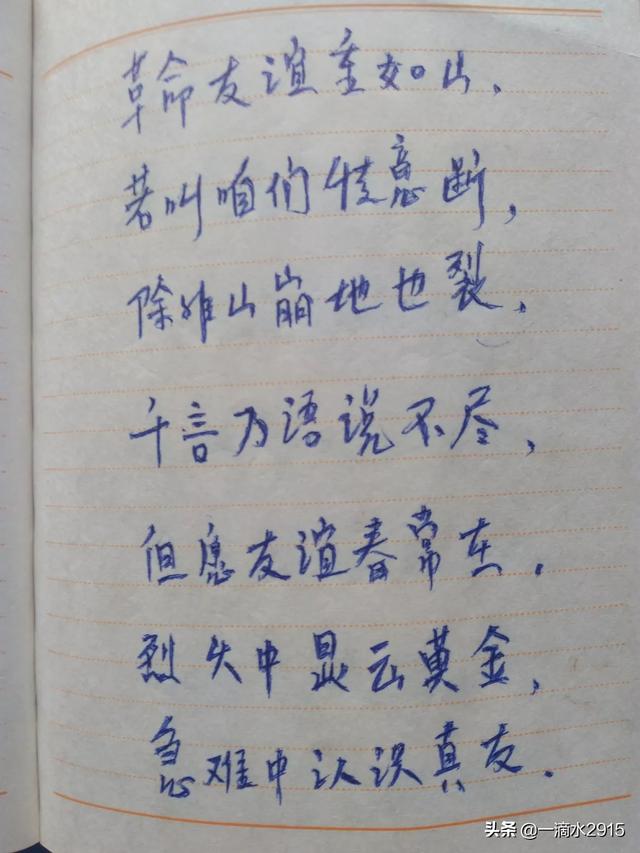 革命友谊重如山，
若叫咱们情意断，
除非山崩地也裂，
千言乃语说不尽，
但愿友谊春常在。
烈火中显云黄金，
急难中认识真友．
头条 @一滴水2915